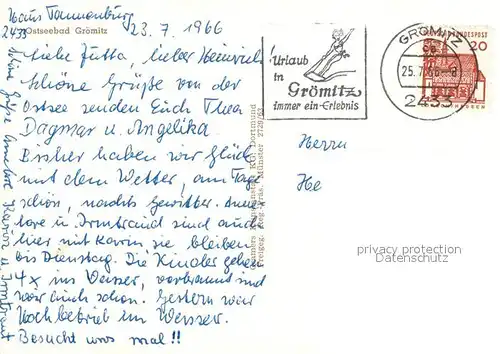 Haus Tannenburg
2433 Ostseebad Grömitz
23.7.1966
Liebe Jutta, lieber Heinrich
schöne Grüße von der
Ostsee senden Euch Thea
Dagmar u. Angelika.
Bisher haben wir Glück
mit dem Wetter, am Tage
schön, nachts Gewitter. Anne
lore u. Irmtraut sind auch
hier mit Karin sie bleiben
bis Dienstag. Die Kinder gehen
4x ins Wasser, verbrannt sind
wir auch schon. Gestern war
Hochbetrieb im Wasser.
Besucht uns mal!!
Grüße Annelore Karin u. Irmtraut
Urlaub
in
Grömitz
immer ein Erlebnis
GRÖMITZ
25.7.66-8
2433
BUNDESPOST
20
Herrn
He
privacy protection
Datenschutz